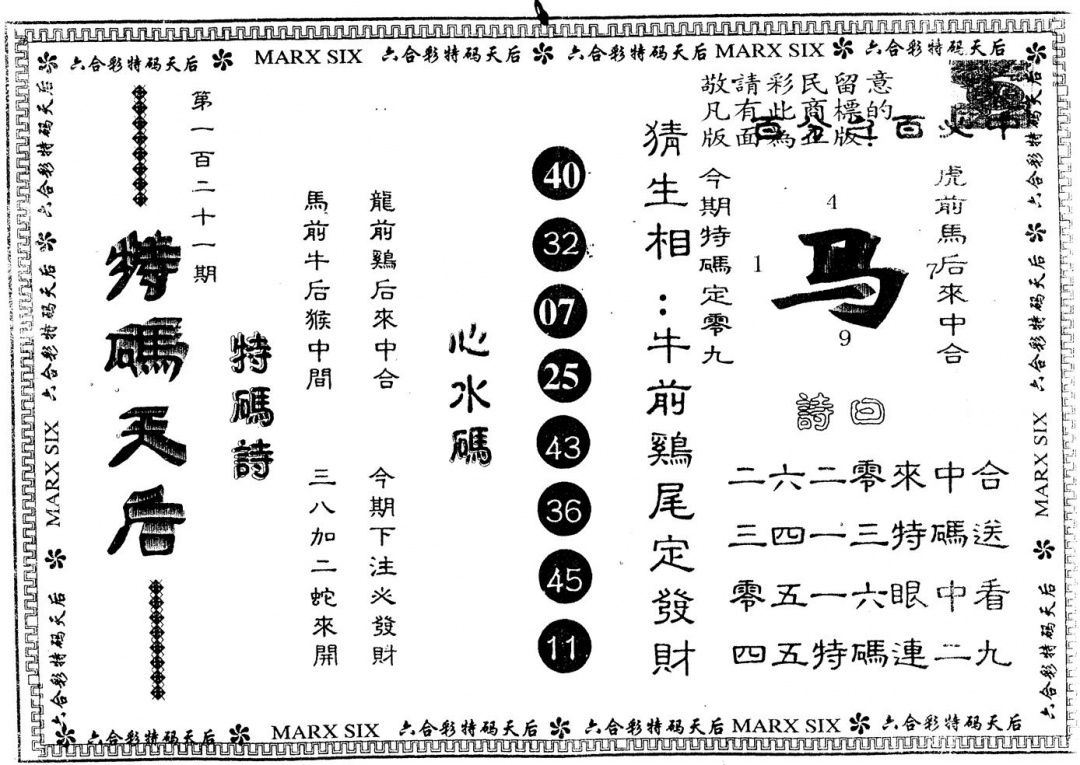 六合彩特码天后 MARX SIX 六合彩特码天后 六合彩特码天后 MARX SIX 六合彩特码天后
敬請彩民留意
凡有此商標的
版面為正版!
百分之百必中
虎前馬后來中合
4
1
马
7
9
今期特碼定零九
詩曰
二六二零來中合
三四一三特碼送
零五一六眼中看
四五特碼連二九
猜生相:牛前鷄尾定發財
40
32
07
25
43
36
45
11
心水碼
龍前鷄后來中合
今期下注必發財
馬前牛后猴中間
三八加二蛇來開
特碼詩
第一百二十一期
特碼天后
六合彩特码天后 六合彩特码天后 六合彩特码天后 MARX SIX 六合彩特码天后
六合彩特码天后 六合彩特码天后 MARX SIX 六合彩特码天后
六合彩特码天后 MARX SIX 六合彩特码天后 六合彩特码天后 MARX SIX 六合彩特码天后